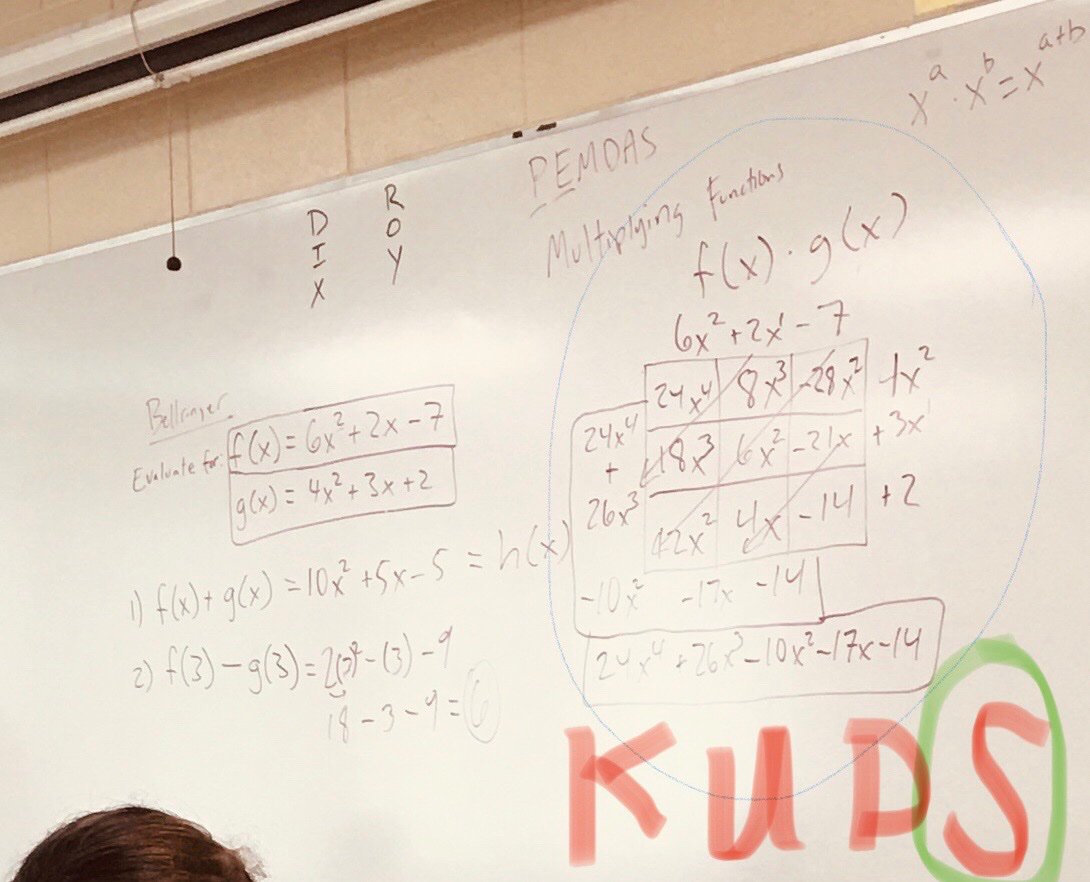 x^a · x^b = x^(a+b)
PEMDAS
DIX
ROY
Multiplying Functions
f(x) · g(x)
6x² + 2x¹ - 7
24x⁴ 8x³ -28x² 4x²
18x³ 6x² -21x +3x¹
12x² 4x -14 +2
24x⁴
+
26x³
-10x² -17x -14
24x⁴ + 26x³ - 10x² - 17x - 14
Bellringer
Evaluate for:
f(x) = 6x² + 2x - 7
g(x) = 4x² + 3x + 2
1) f(x) + g(x) = 10x² + 5x - 5 = h(x)
2) f(3) - g(3) = 2(3)² - (3) - 9
18 - 3 - 9 = 6
KUDS